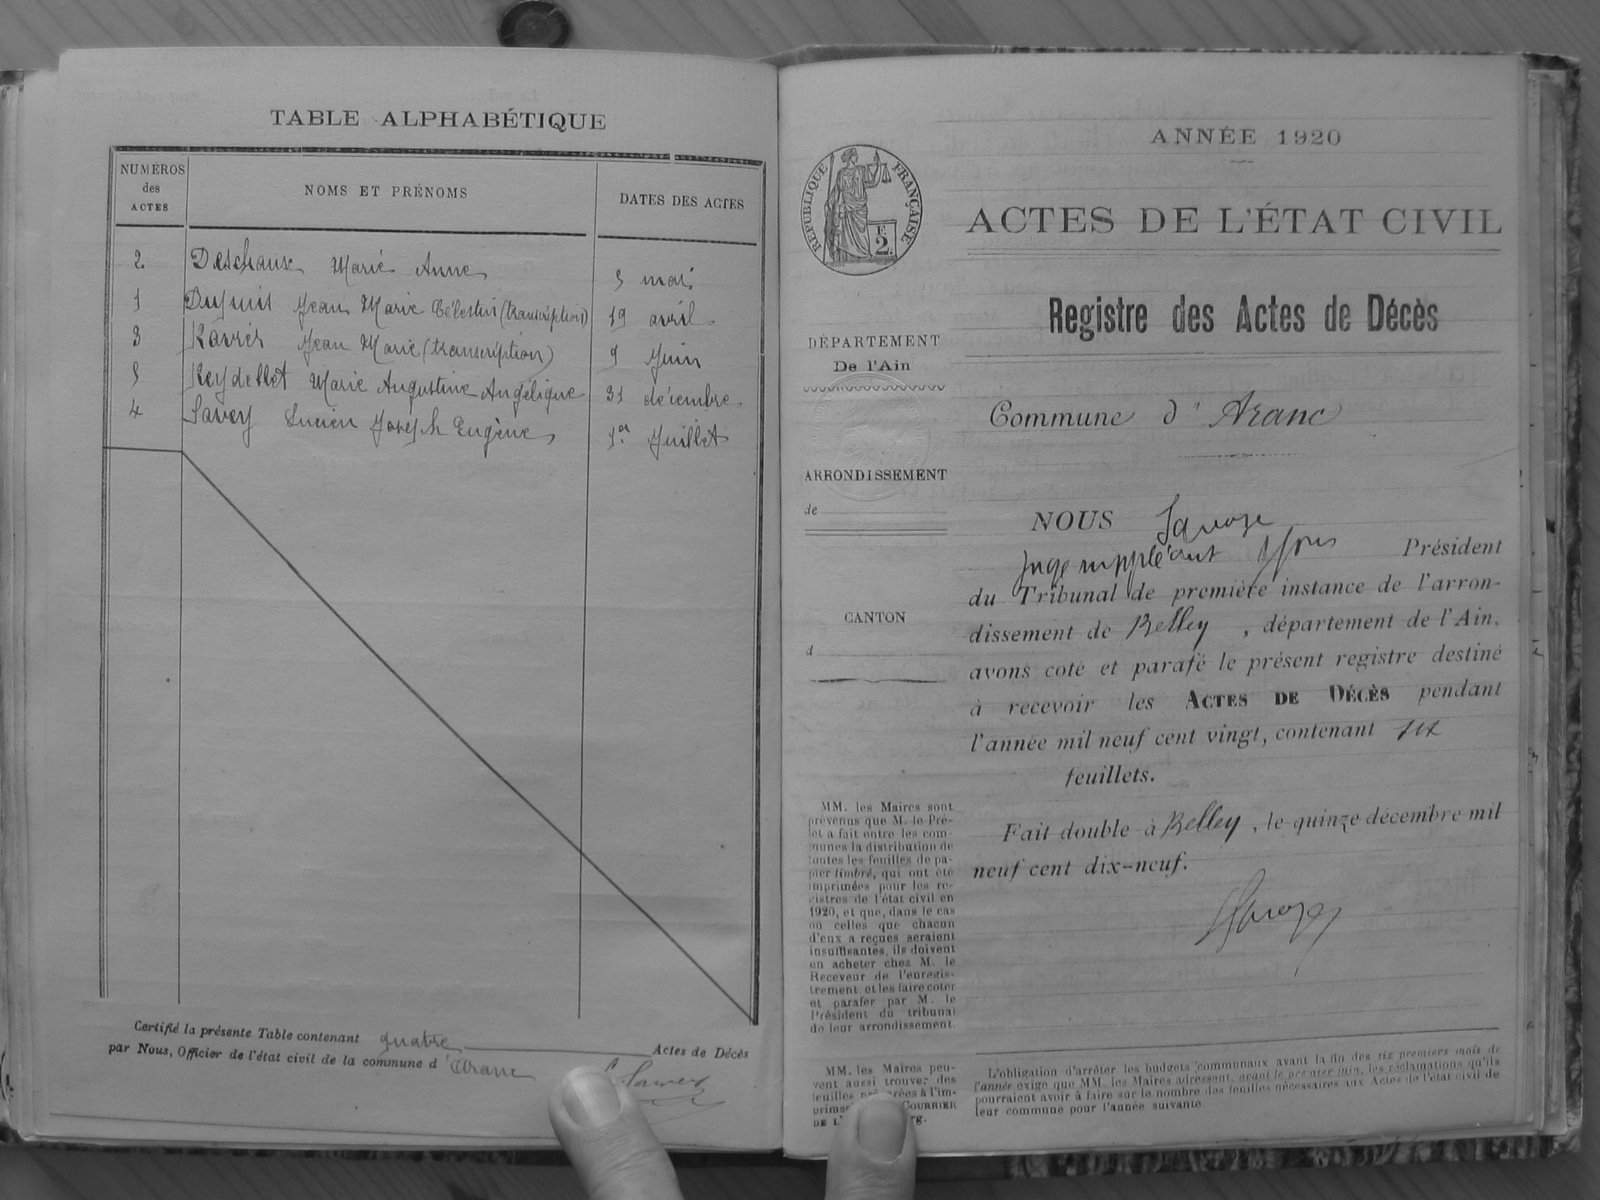 TABLE ALPHABÉTIQUE
NUMÉROS
des
ACTES
NOMS ET PRÉNOMS
DATES DES ACTES
2 Deschaux Marie Anne 5 mai
1 Dupuis Jean Marie Célestin (transcription) 19 avril
3 Ravier Jean Marie (transcription) 9 Juin
5 Reydellet Marie Augustine Angélique 31 décembre
4 Savey Lucien Joseph Eugène 1er Juillet
Certifié la présente Table contenant quatre Actes de Décès
par Nous, Officier de l'état civil de la commune d'Aranc
ANNÉE 1920
RÉPUBLIQUE FRANÇAISE
2
ACTES DE L'ÉTAT CIVIL
Registre des Actes de Décès
DÉPARTEMENT
De l'Ain
Commune d'Aranc
ARRONDISSEMENT
de
CANTON
d
NOUS
Juge suppléant Président
du Tribunal de première instance de l'arron-
dissement de Belley, département de l'Ain,
avons coté et parafé le présent registre destiné
à recevoir les ACTES DE DÉCÈS pendant
l'année mil neuf cent vingt, contenant six
feuillets.
Fait double à Belley, le quinze décembre mil
neuf cent dix-neuf.
MM. les Maires sont
prévenus que M. le Pré-
fet a fait entre les com-
munes la distribution de
toutes les feuilles de pa-
pier timbré, qui ont été
imprimées pour les re-
gistres de l'état civil en
1920, et que, dans le cas
où celles que chacun
d'eux a reçues seraient
insuffisantes, ils doivent
en acheter chez M. le
Receveur de l'enregis-
trement et les faire coter
et parafer par M. le
Président du tribunal
de leur arrondissement
MM. les Maires peu-
vent aussi trouver des
feuilles à l'im-
COURRIER
DE L'
L'obligation d'arrêter les budgets communaux avant la fin des six premiers mois de
l'année exige que MM. les Maires adressent, avant le premier juin, les réclamations qu'ils
pourraient avoir à faire sur le nombre des feuilles nécessaires aux Actes de l'état civil de
leur commune pour l'année suivante